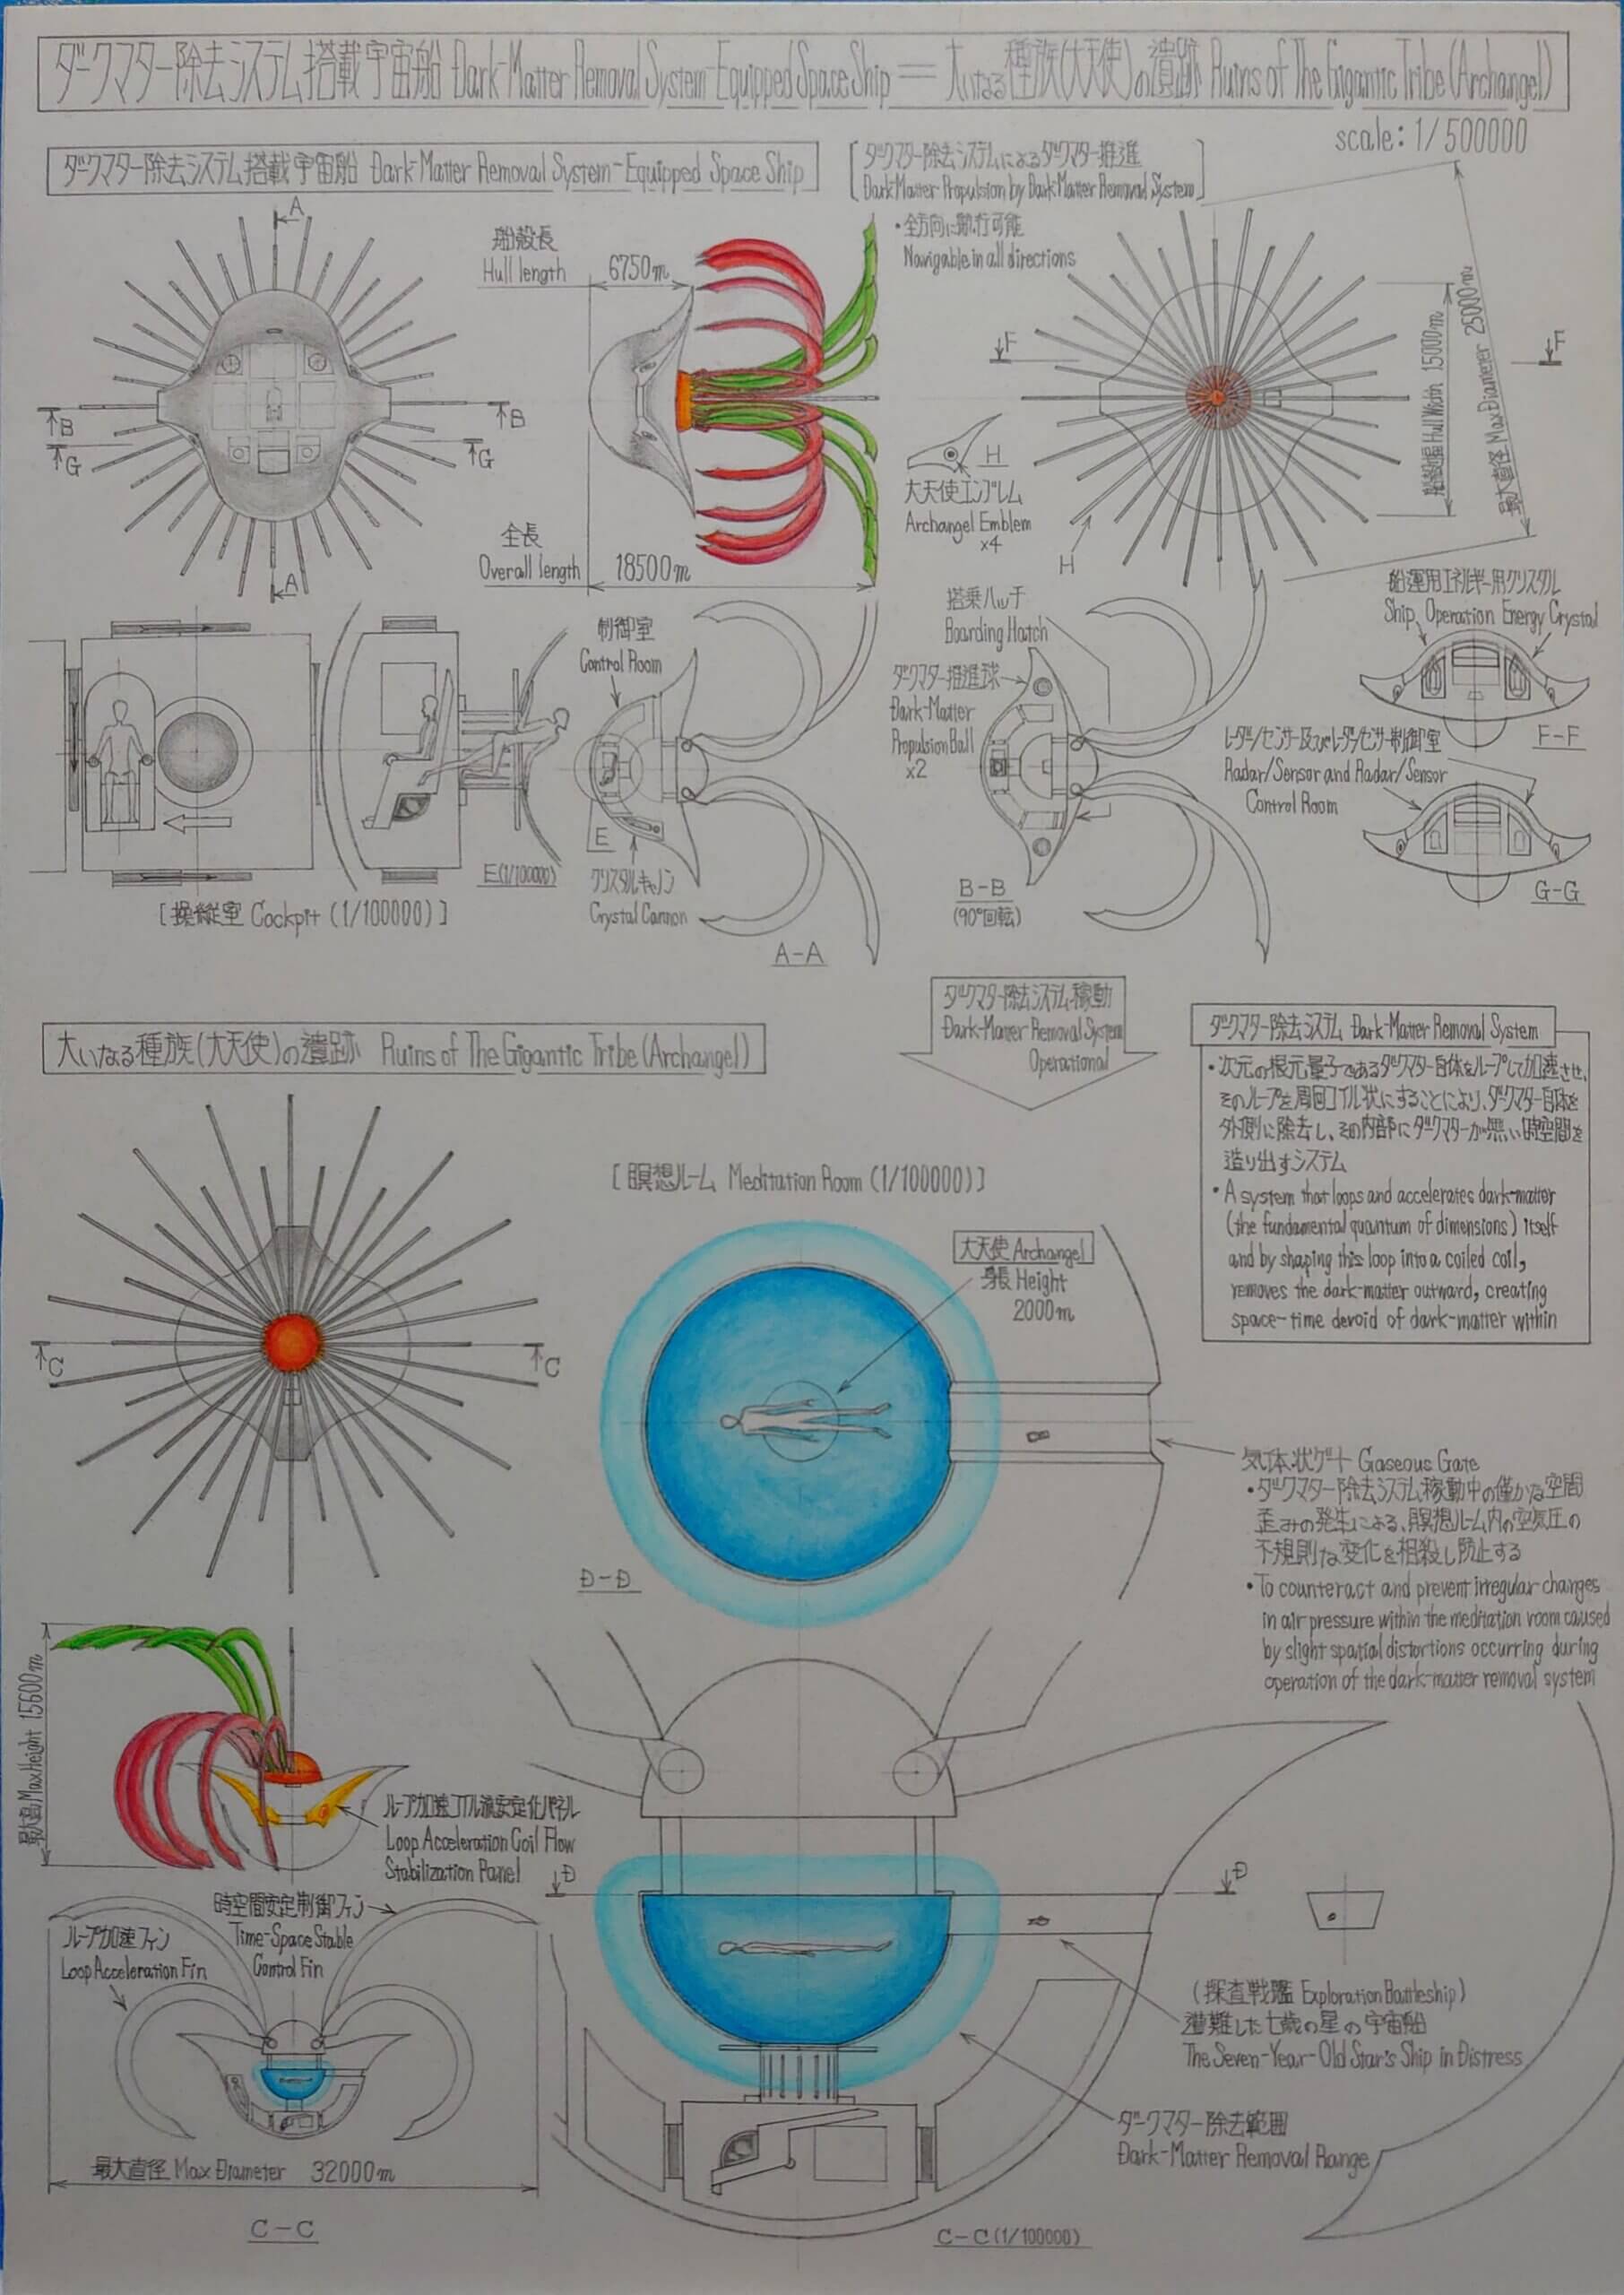 ダークマター除去システム搭載宇宙船 Dark-Matter Removal System-Equipped Space Ship = 大いなる種族(大天使)の遺跡 Ruins of The Gigantic Tribe (Archangel)
scale: 1/500000
ダークマター除去システム搭載宇宙船 Dark-Matter Removal System-Equipped Space Ship
[ダークマター除去システムによるダークマター推進
Dark-Matter Propulsion by Dark-Matter Removal System]
・全方向に航行可能
Navigable in all directions
A
船殻長
Hull length
6750m
F
F
船殻幅 Hull Width 15000m
最大直径 Max Diameter 25000m
B
B
G
G
H
大天使エンブレム
Archangel Emblem
×4
全長
Overall length
18500m
A
H
船運用エネルギー用クリスタル
Ship Operation Energy Crystal
制御室
Control Room
搭乗ハッチ
Boarding Hatch
ダークマター推進球
Dark-Matter
Propulsion Ball
×2
F-F
レーダー/センサー及びレーダー/センサー制御室
Radar/Sensor and Radar/Sensor
Control Room
E
E(1/100000)
クリスタルキャノン
Crystal Cannon
B-B
(90°回転)
G-G
[操縦室 Cockpit (1/100000)]
A-A
ダークマター除去システム稼動
Dark-Matter Removal System
Operational
大いなる種族(大天使)の遺跡 Ruins of The Gigantic Tribe (Archangel)
ダークマター除去システム Dark-Matter Removal System
・次元の根元量子であるダークマター自体をループして加速させ、
そのループを周回コイル状にすることにより、ダークマター自体を
外側に除去し、その内部にダークマターが無い時空間を
造り出すシステム
・A system that loops and accelerates dark-matter
(the fundamental quantum of dimensions) itself
and by shaping this loop into a coiled coil,
removes the dark-matter outward, creating
space-time devoid of dark-matter within
[瞑想ルーム Meditation Room (1/100000)]
大天使 Archangel
身長 Height
2000m
C
C
D-D
気体状ゲート Gaseous Gate
・ダークマター除去システム稼動中の僅かな空間
歪みの発生による、瞑想ルーム内の空気圧の
不規則な変化を相殺し防止する
・To counteract and prevent irregular changes
in air pressure within the meditation room caused
by slight spatial distortions occurring during
operation of the dark-matter removal system
最大高 Max Height 15600m
ループ加速コイル流安定化パネル
Loop Acceleration Coil Flow
Stabilization Panel
D
D
時空間安定制御フィン
Time-Space Stable
Control Fin
ループ加速フィン
Loop Acceleration Fin
(探査戦艦 Exploration Battleship)
遭難した七歳の星の宇宙船
The Seven-Year-Old Star's Ship in Distress
ダークマター除去範囲
Dark-Matter Removal Range
最大直径 Max Diameter 32000m
C-C
C-C(1/100000)